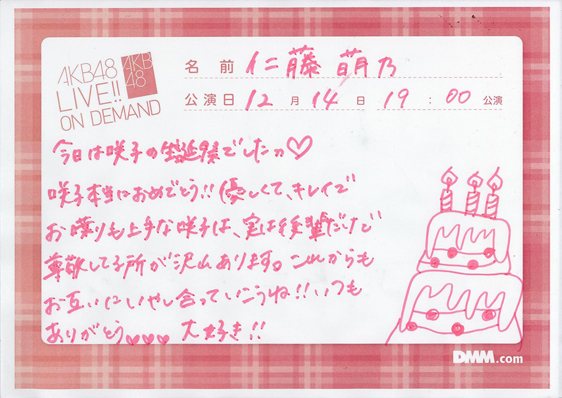 AKB48
LIVE!!
ON DEMAND
AKB
48
名前 仁藤萌乃
公演日 12月14日 19:00 公演
今日は咲子の生誕祭でしたッ♡
咲子本当におめでとう!!優しくて、キレイで
お喋りも上手な咲子は、実は後輩だけど
尊敬してる所が沢山あります。これからも
お互いにいやし合っていこうね!!いつも
ありがとう♥♥♥ 大好き!!
DMM.com